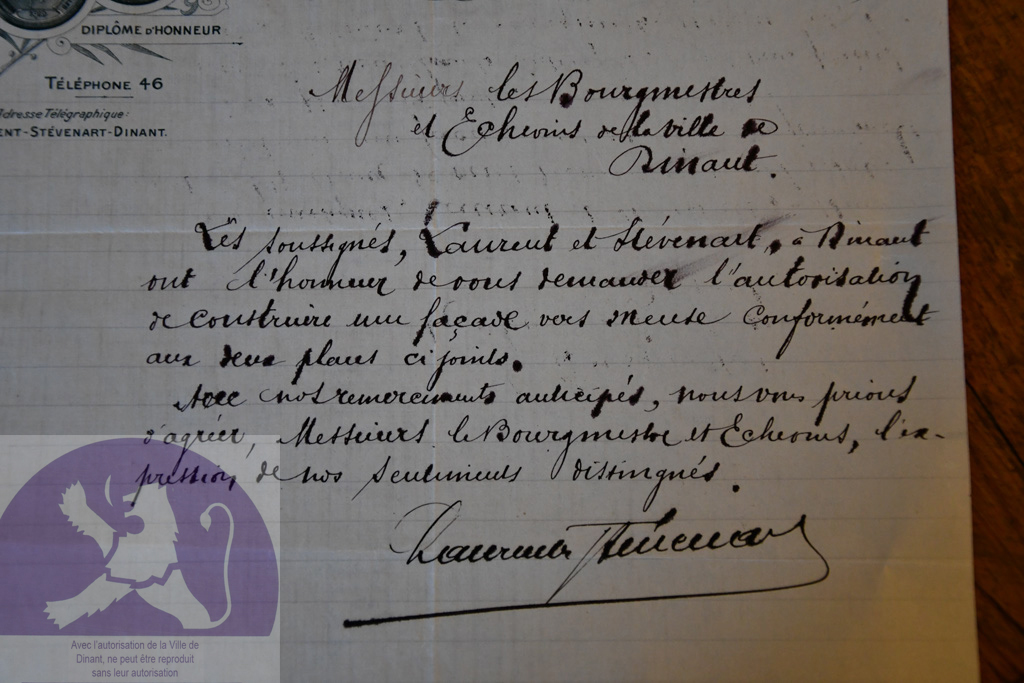 DIPLÔME D'HONNEUR
TÉLÉPHONE 46
Adresse Télégraphique:
ENT-STÉVENART-DINANT.
Messieurs les Bourgmestres
et Echevins de la ville de
Dinant.
Les soussignés, Laurent et Stévenart, à Dinant
ont l'honneur de vous demander l'autorisation
de construire une façade vers Meuse conformément
aux deux plans ci joints.
Avec nos remerciements anticipés, nous vous prions
d'agréer, Messieurs le Bourgmestre et Echevins, l'ex-
pression, de nos sentiments distingués.
Laurent Stévenart
Avec l'autorisation de la Ville de
Dinant, ne peut être reproduit
sans leur autorisation